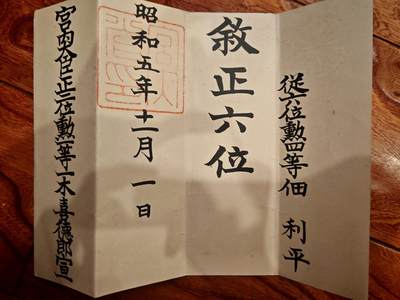 從六位勲四等佃 利平
敍正六位
昭和五年十一月一日
宮内大臣正二位勲一等一木喜德郎宣